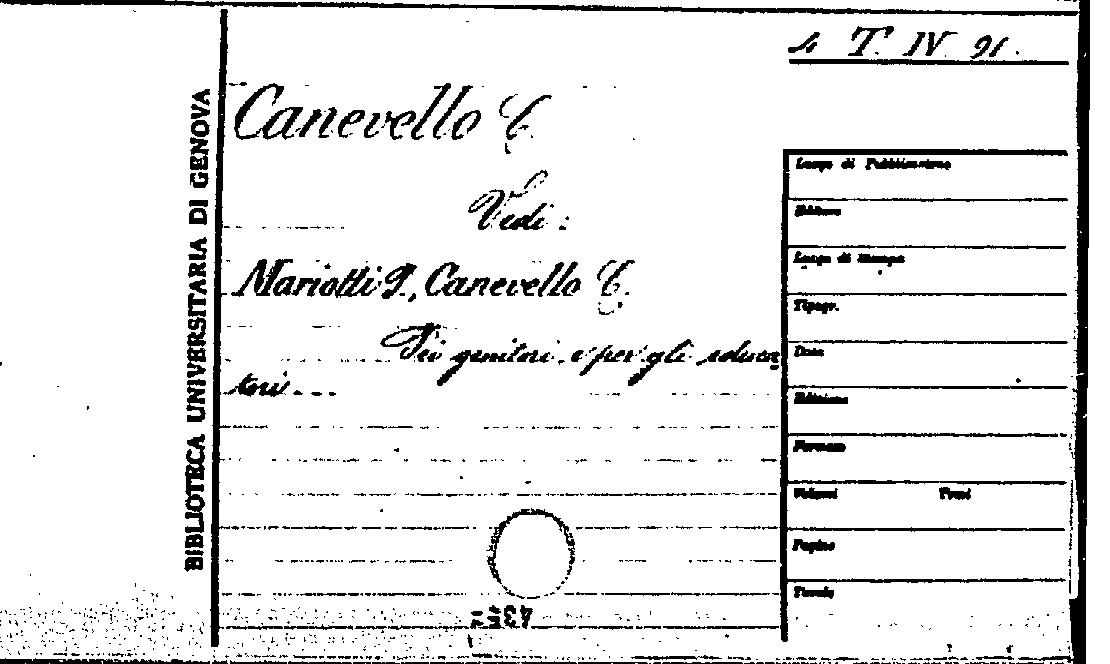 4 T. IV 91.
BIBLIOTECA UNIVERSITARIA DI GENOVA
Canevello C.
Vedi:
Mariotti G., Canevello C.
Pei genitori e per gli educa
tori...
Luogo di Pubblicazione
Editore
Luogo di Stampa
Tipogr.
Data
Edizione
Formato
Volumi Tomi
Pagine
Tavole